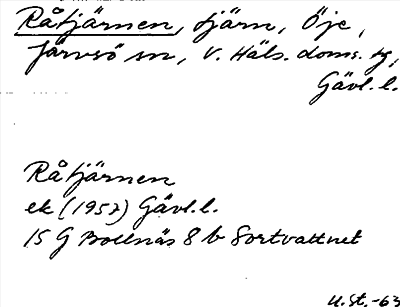 Råtjärnen, tjärn, Öje,
Järvsö sn, V. Häls. doms. tg,
Gävl. l.
Råtjärnen
ek (1957) Gävl. l.
15 G Bollnäs 8 b Sortvattnet
U. St. -63